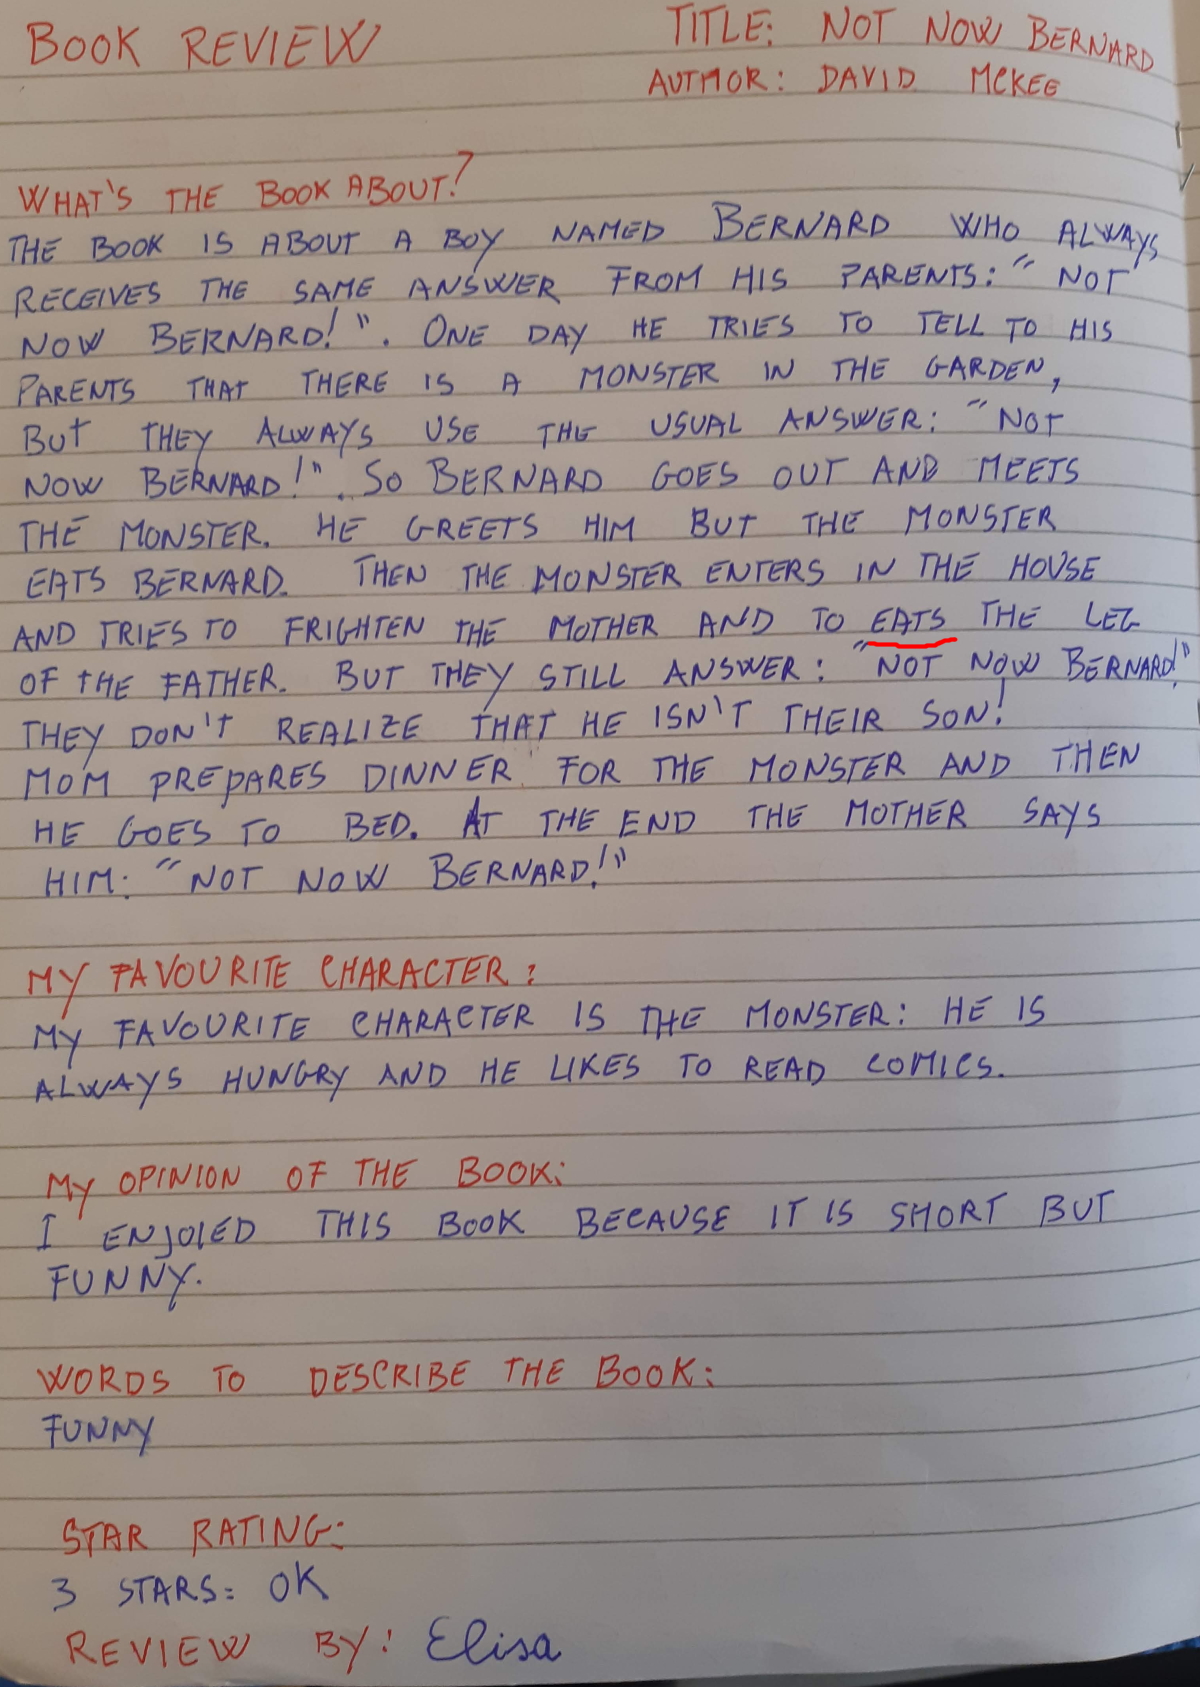 BOOK REVIEW
TITLE: NOT NOW BERNARD
AUTHOR: DAVID MCKEE
WHAT'S THE BOOK ABOUT?
THE BOOK IS ABOUT A BOY NAMED BERNARD WHO ALWAYS
RECEIVES THE SAME ANSWER FROM HIS PARENTS: "NOT
NOW BERNARD!". ONE DAY HE TRIES TO TELL TO HIS
PARENTS THAT THERE IS A MONSTER IN THE GARDEN,
BUT THEY ALWAYS USE THE USUAL ANSWER: "NOT
NOW BERNARD!". SO BERNARD GOES OUT AND MEETS
THE MONSTER. HE GREETS HIM BUT THE MONSTER
EATS BERNARD. THEN THE MONSTER ENTERS IN THE HOUSE
AND TRIES TO FRIGHTEN THE MOTHER AND TO EATS THE LEG
OF THE FATHER. BUT THEY STILL ANSWER: "NOT NOW BERNARD!"
THEY DON'T REALIZE THAT HE ISN'T THEIR SON!
MOM PREPARES DINNER FOR THE MONSTER AND THEN
HE GOES TO BED. AT THE END THE MOTHER SAYS
HIM: "NOT NOW BERNARD!"
MY FAVOURITE CHARACTER:
MY FAVOURITE CHARACTER IS THE MONSTER: HE IS
ALWAYS HUNGRY AND HE LIKES TO READ COMICS.
MY OPINION OF THE BOOK:
I ENJOIED THIS BOOK BECAUSE IT IS SHORT BUT
FUNNY.
WORDS TO DESCRIBE THE BOOK:
FUNNY
STAR RATING:
3 STARS: OK
REVIEW BY: Elisa